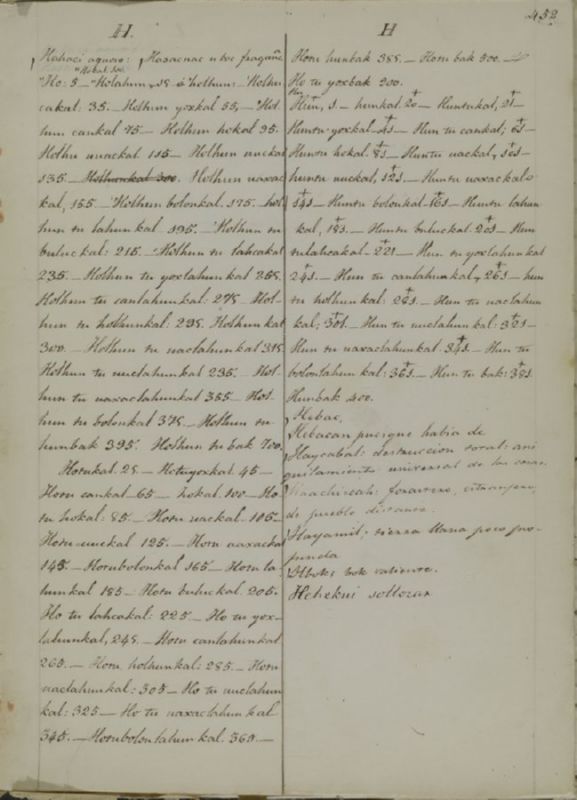 452
H.
Hahaci aguoro: Haxacnac u boc fragañe
"Hobak 300.
"Ho: 5 - "Holahun, 15 é holhun: "Holhu
cakal: 35. Holhun yoxkal 55, - "Hol
hun cankal 75 - Holhun hokal 95.
Holhu uuackal 115 - Holhun uuckal
135 - Holhuackal 300. Holhun uaxac
kal, 155 - Holhun bolonkal. 175. hol
hun tu lahunkal 195. - Holhun tu
buluckal: 215. - Holhun tu lahcakal
235. - Holhun tu yoxlahunkal 255.
Holhun tu canlahunkal: 275 - Hol-
hun tu holhunkal: 295. Holhunkal
300. - Holhun tu uaclahunkal 315
Holhun tu uuclahunkal 335. - Hol-
hun tu uaxaclahunkal 355 - Hol
hun tu bolonkal 375. - Holhun tu
hunbak 395. Holhun tu bak 700.
Hotukal. 25 - Hotuyoxkal 45 -
Hotu cankal 65. - hokal. 100 - Ho
tu hokal: 85. - Hotu uackal - 105 -
Hotu uuckal 125. - Hotu uaxackal
145 - Hotubolonkal 165 - Hotu la-
hunkal 185 - Hotu buluckal 205.
Ho tu lahcakal: 225 - Ho tu yox-
lahunkal, 245. - Hotu canlahunkal
265. - Hotu holhunkal: 285. - Hotu
uaclahunkal: 305 - Ho tu uuclahun
kal: 325 - Ho tu uaxaclahunkal
345. - Hotubolonlahunkal. 365 -
H
Hotu hunbak 385. - Hotu bak 500.
Ho tu yoxbak 900.
Hun, 1. - hunkal. 20 - Huntukal, 21 -
Huntu yoxkal - 41 - Hun tu cankal, 61 -
Huntu hokal. 81 - Huntu uackal, 101 -
huntu uuckal, 121 - Huntu uaxackal
141 - Huntu bolonkal. 161 - Huntu lahun
kal, 181 - Huntu buluckal. 201 - Hun
tulahcakal - 221 - Hun tu yoxlahunkal
241. - Hun tu canlahunkal, 261 - hun
tu holhunkal: 281 - Hun tu uaclahun
kal; 301. Hun tu uuclahunkal: 321 -
Hun tu uaxaclahunkal. 341 - Hun tu
bolonlahunkal: 361 - Hun tu bak: 381
Hunbak 400.
Hebac,
Hebacan puesque habia de
Haycabal: destruccion total: ani
quilamiento universal de las cosas.
forastero, extranjero,
de pueblo distante.
Hayamil: tierra llana poco pro-
funda
bok valiente.
Hehekni solloran